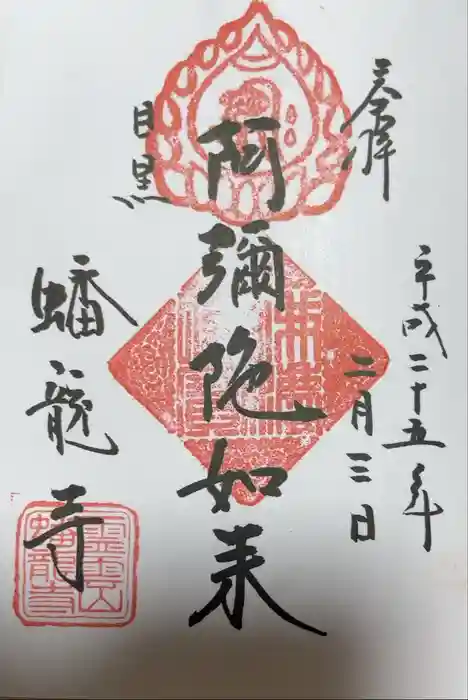 奉拝
平成二十五年
二月三日
阿彌陀如来
目黒
蟠龍寺
霊雲山
蟠龍寺